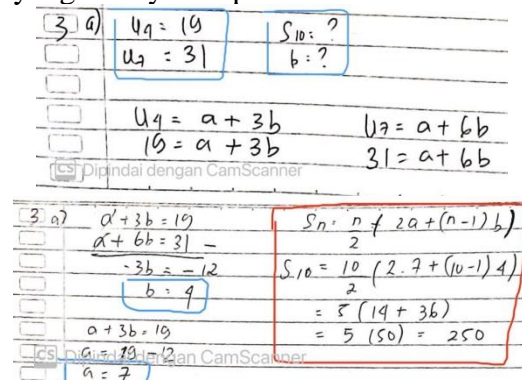 3 a) U4 = 19
U7 = 31
S10 = ?
b = ?
U4 = a + 3b
19 = a + 3b
U7 = a + 6b
31 = a + 6b
CS Dipindai dengan CamScanner
3 a) a + 3b = 19
a + 6b = 31 -
-3b = -12
b = 4
a + 3b = 19
a = 19 - 12
a = 7
Sn = n/2 ( 2a + (n-1) b )
S10 = 10/2 ( 2.7 + (10-1) 4 )
= 5 ( 14 + 36 )
= 5 (50) = 250
CS Dipindai dengan CamScanner